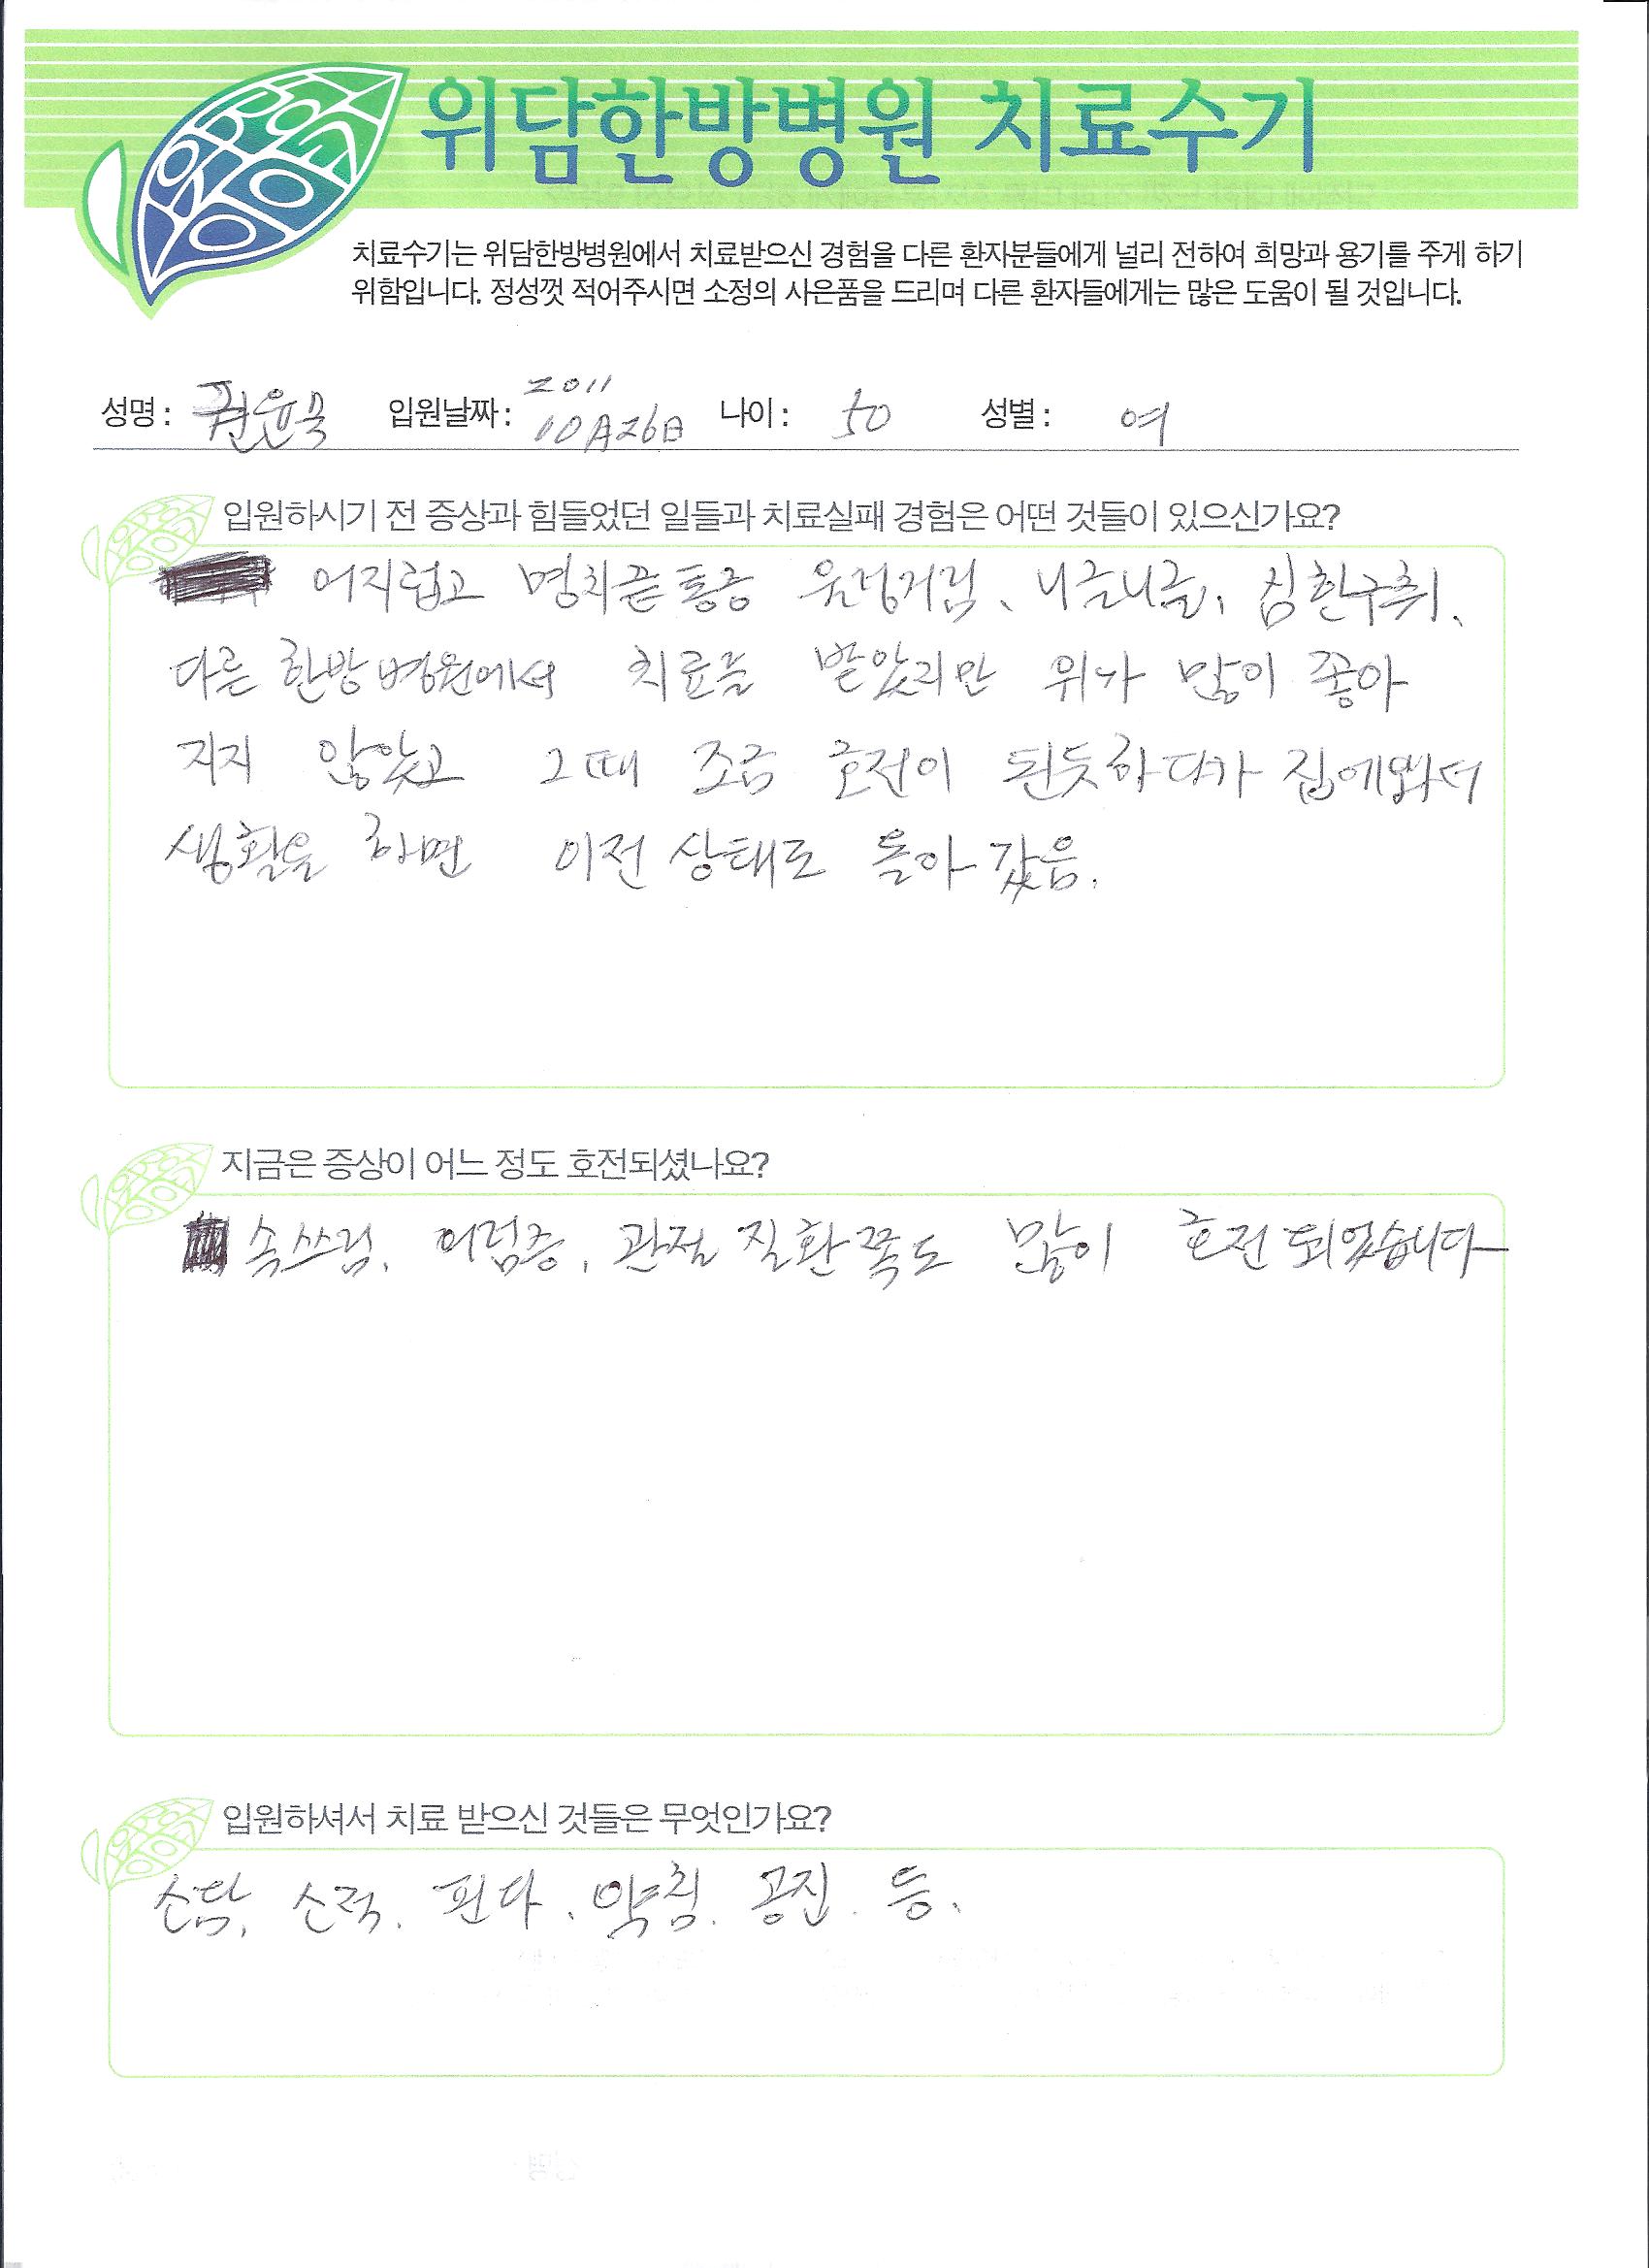 위담한방병원 치료수기
치료수기는 위담한방병원에서 치료받으신 경험을 다른 환자분들에게 널리 전하여 희망과 용기를 주게 하기
위함입니다. 정성껏 적어주시면 소정의 사은품을 드리며 다른 환자들에게는 많은 도움이 될 것입니다.
성명 : 입원날짜 : 2011 10月26日 나이 : 50 성별 : 여
입원하시기 전 증상과 힘들었던 일들과 치료실패 경험은 어떤 것들이 있으신가요?
어지럽고 명치끝 통증 울렁거림、니글니글, 심한구취、
다른 한방병원에서 치료를 받았지만 위가 많이 좋아
지지 않았고 그때 조금 호전이 된듯하다가 집에와서
생활을 하면 이전 상태로 돌아 갔음.
지금은 증상이 어느 정도 호전되셨나요?
속쓰림, 어럼증, 관절 질환쪽도 많이 호전 되었습니다
입원하셔서 치료 받으신 것들은 무엇인가요?
소담, 소적. 핀다. 약침. 공진. 등.